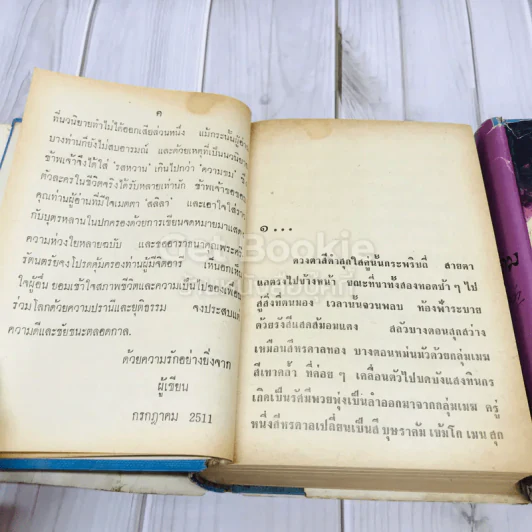 ค
ที่นวนิยายทำไม่ได้ออกเสียส่วนหนึ่ง แม้กระนั้นผู้อ่าน
บางท่านก็ยังไม่สบอารมณ์ และด้วยเหตุที่เป็นนวนิยาย
ข้าพเจ้าจึงได้ใส่ "รสหวาน" เกินไปกว่า "ความขม" ซึ่ง
ตัวละครในชีวิตจริงได้รับหลายเท่านัก ข้าพเจ้าขอขอบ
คุณท่านผู้อ่านที่มีใจเมตตา "สลิลา" และเอาใจใส่ราว
กับบุตรหลานในปกครองด้วยการเขียนจดหมายมาแสดง
ความห่วงใยหลายฉบับ และขออาราธนาคุณพระศรี
รัตนตรัยจงโปรดคุ้มครองท่านผู้มีจิตอารี เห็นอกเห็น
ใจผู้อื่น ยอมเข้าใจสภาพชีวิตและความเป็นไปของเพื่อน
ร่วมโลกด้วยความปรานีและยุติธรรม จงประสบแต่
ความดีและชัยชนะตลอดกาล.
ด้วยความรักอย่างยิ่งจาก
ผู้เขียน
กรกฎาคม 2511
๑ ...
ดวงตาสีดำสุกใสคู่นั้นกระพริบถี่ สายตา
แลตรงไปข้างหน้า ขณะที่บาทั้งสองทอดช้า ๆ ไป
สู่สิ่งที่ตนมอง เวลานั้นจวนพลบ ท้องฟ้าระบาย
ด้วยรังสีแสดส้มอมแดง สลัวบางตอนสุกสว่าง
เหมือนสีหรดาลทอง บางตอนหม่นมัวด้วยกลุ่มเมฆ
สีเทาคล้ำ ที่ค่อย ๆ เคลื่อนตัวไปบดบังแสงทินกร
เกิดเป็นรัศมีพวยพุ่งเป็นลำออกมาจากกลุ่มเมฆ ครู่
หนึ่งสีหรดาลเปลี่ยนเป็นสี บุษราคัม เข้มโก เมน สุก
GetBookie